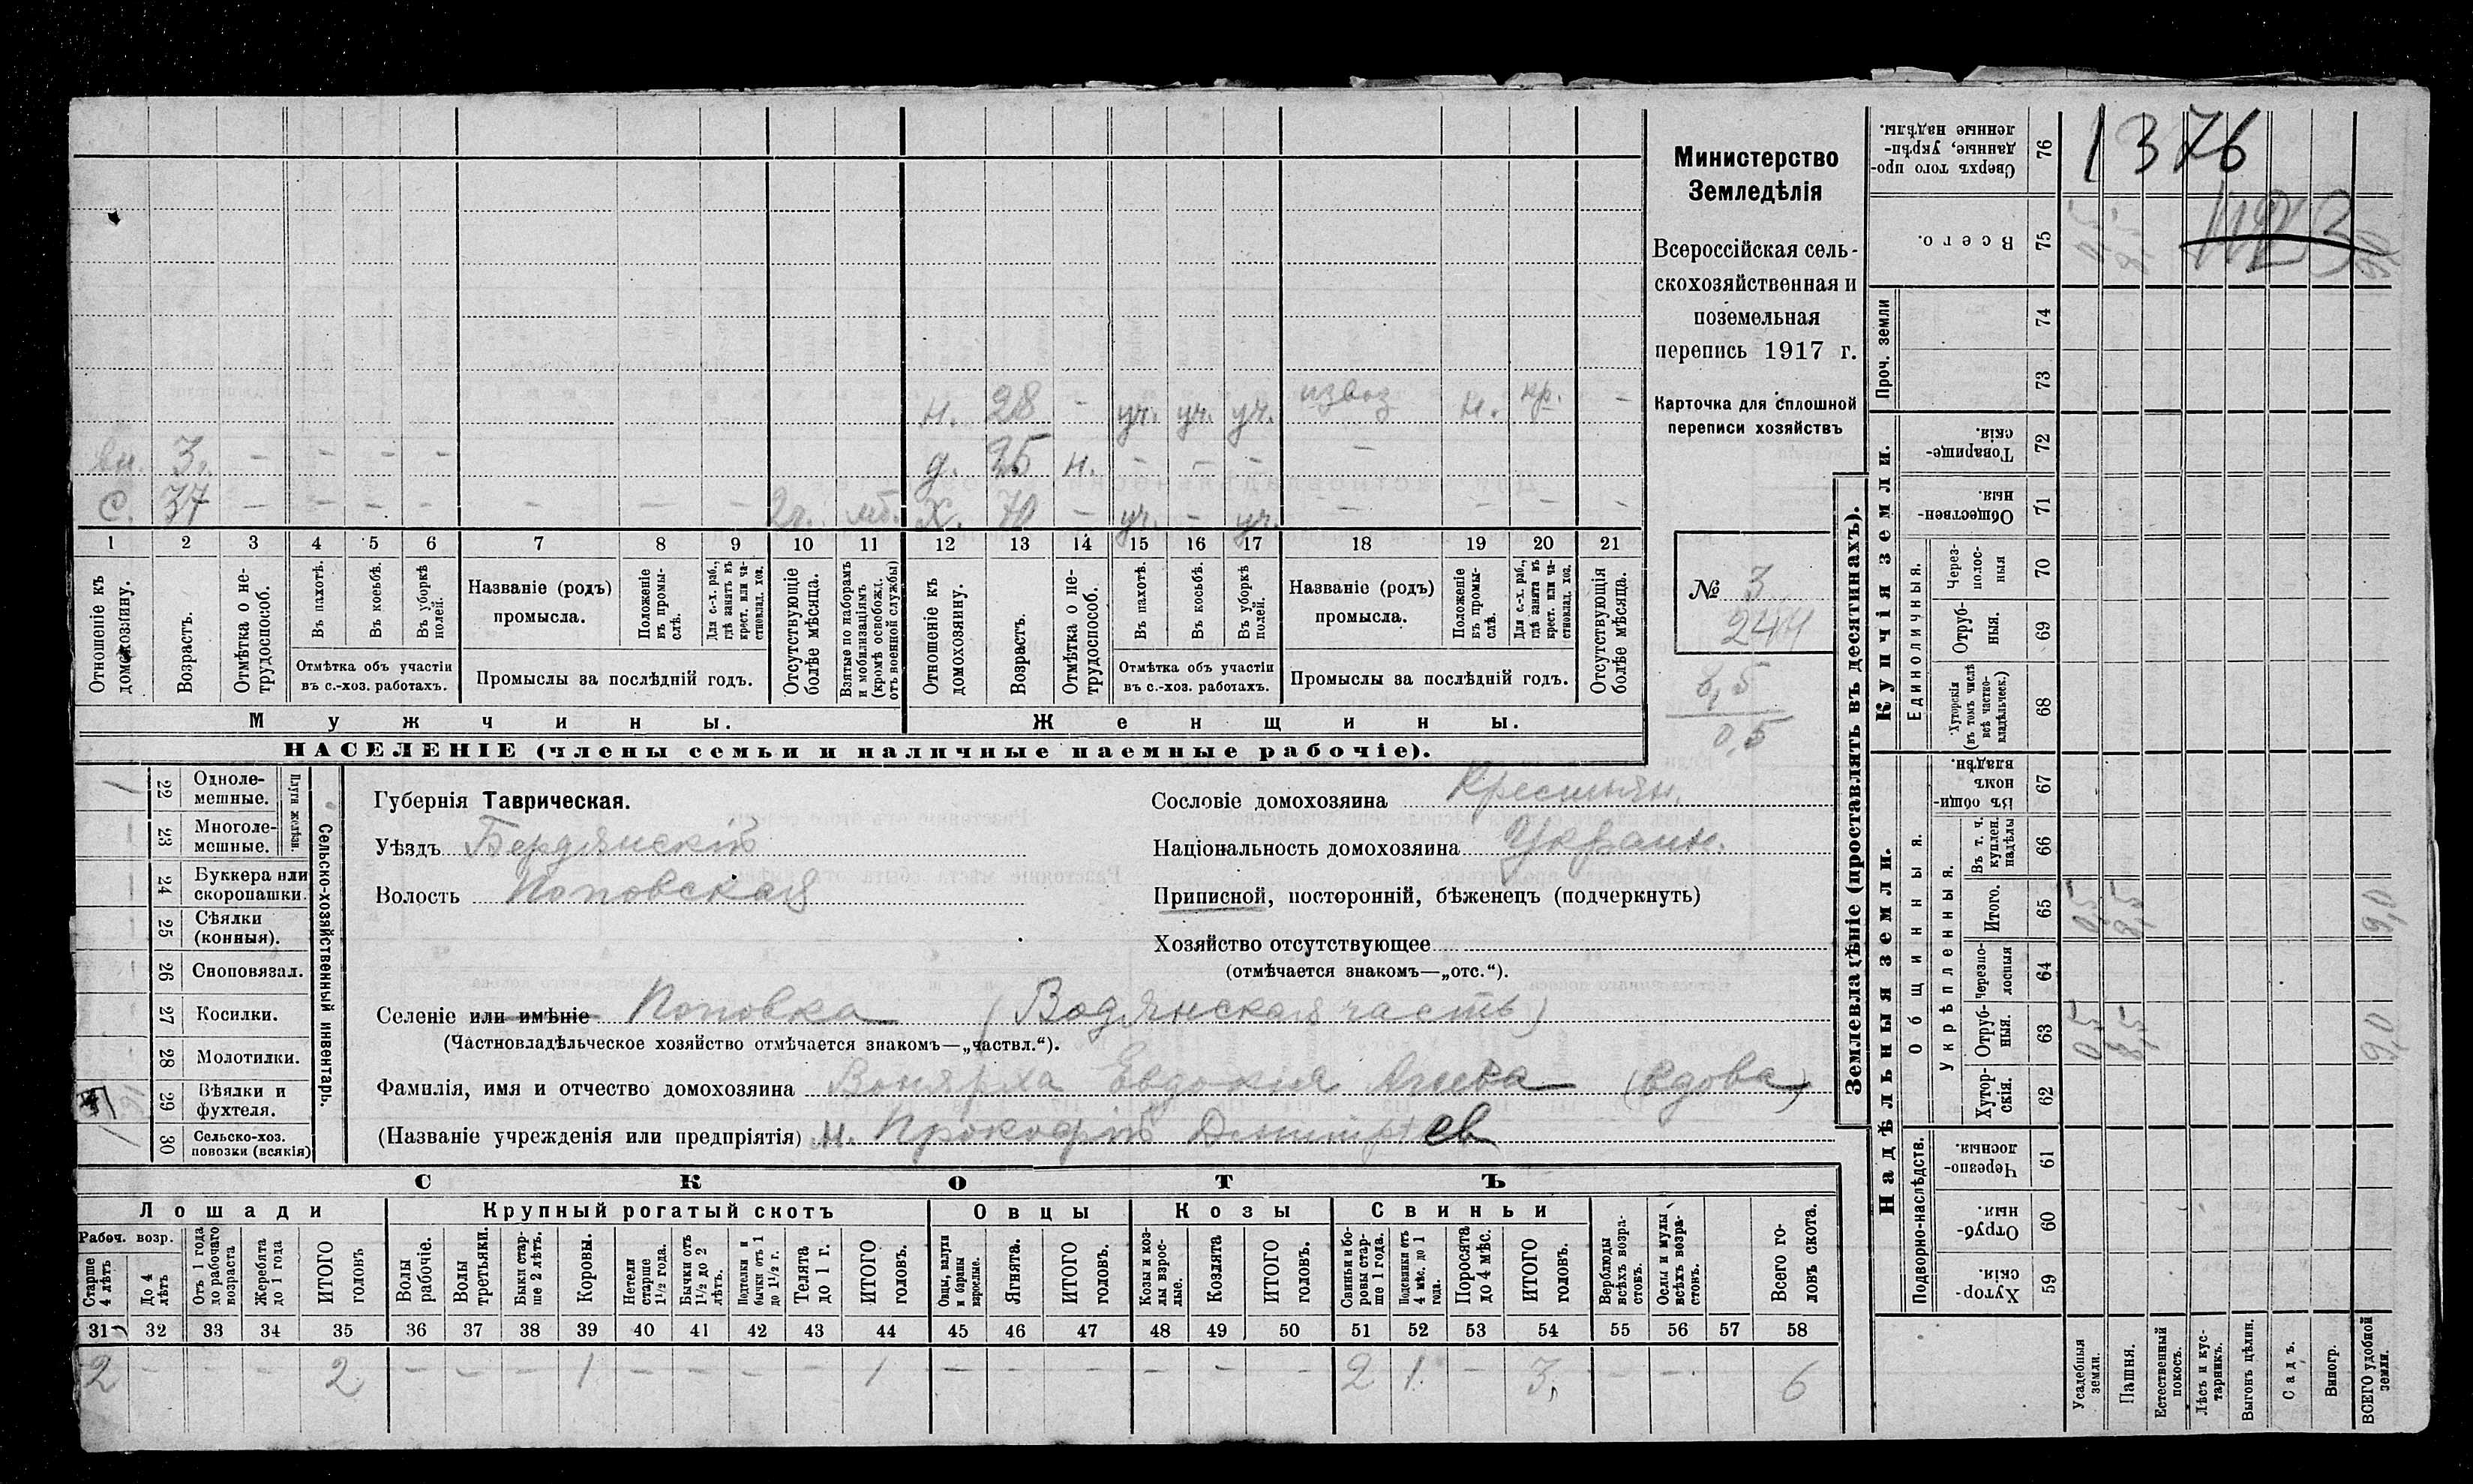 н. 28 - уч. уч. уч. извоз н. кр. -
вн. 3. - - - - д. 35 н. - - - -
с. 37 - - - - - - - 2г. мб. х. 70 - уч. - уч. - - - -
1 2 3 4 5 6 7 8 9 10 11 12 13 14 15 16 17 18 19 20 21
Отношеніе къ домохозяину.
Возрастъ.
Отмѣтка о не-трудоспособ.
Въ пахотѣ.
Въ косьбѣ.
Въ уборкѣ полей.
Отмѣтка объ участіи въ с.-хоз. работахъ.
Названіе (родъ) промысла.
Положеніе въ промы-слѣ.
Для с.-х. раб., гдѣ занятъ въ крест. или ча-стновлад. хоз.
Промыслы за послѣдній годъ.
Отсутствующіе болѣе мѣсяца.
Взятые по наборамъ и мобилизаціямъ (кромѣ освобожд. отъ военной службы)
Отношеніе къ домохозяину.
Возрастъ.
Отмѣтка о не-трудоспособ.
Въ пахотѣ.
Въ косьбѣ.
Въ уборкѣ полей.
Отмѣтка объ участіи въ с.-хоз. работахъ.
Названіе (родъ) промысла.
Положеніе въ промы-слѣ.
Для с.-х. раб., гдѣ занята въ крест. или ча-стновлад. хоз.
Промыслы за послѣдній годъ.
Отсутствующія болѣе мѣсяца.
Мужчины. Женщины.
НАСЕЛЕНІЕ (члены семьи и наличные наемные рабочіе).
Министерство
Земледѣлія
Всероссійская сель-
скохозяйственная и
поземельная
перепись 1917 г.
Карточка для сплошной
переписи хозяйствъ
№ 3
244
0,5
Сельско-хозяйственный инвентарь.
Плуги желѣзн
22 Одноле-мешные. 1
23 Многоле-мешные. -
24 Буккера или скоропашки. -
25 Сѣялки (конныя). -
26 Сноповязал. -
27 Косилки. -
28 Молотилки. -
29 Вѣялки и фухтеля.
30 Сельско-хоз. повозки (всякія) 1
Губернія Таврическая.
Уѣздъ Бердянскій
Волость Поповская
Сословіе домохозяина Крестьян.
Національность домохозяина Украин.
Приписной, посторонній, бѣженецъ (подчеркнуть)
Хозяйство отсутствующее
(отмѣчается знакомъ—„отс.“).
Селеніе или имѣніе Поповка (Водянская часть)
(Частновладѣльческое хозяйство отмѣчается знакомъ—„частвл.“).
Фамилія, имя и отчество домохозяина Вонярха Евдокия (вдова)
(Названіе учрежденія или предпріятія) м. Прокофій Димитріев
СКОТЪ
Лошади Крупный рогатый скотъ Овцы Козы Свиньи
Рабоч. возр.
Старше 4 лѣтъ
До 4 лѣтъ
Отъ 1 года до рабочаго возраста
Жеребята до 1 года
ИТОГО головъ
Волы рабочіе.
Волы третьяки.
Быки стар-ше 2 лѣтъ.
Коровы.
Нетели старше 1½ года.
Бычки отъ 1½ до 2 лѣтъ.
Подтелки и бычки отъ 1 до 1½ г.
Телята до 1 г.
ИТОГО головъ.
Овцы, валухи и бараны взрослые.
Ягнята.
ИТОГО головъ.
Козы и коз-лы взрос-лые.
Козлята
ИТОГО головъ.
Свиньи и бо-ровы стар-ше 1 года.
Подсвинки отъ 4 мѣс. до 1 года.
Поросята до 4 мѣс.
ИТОГО головъ.
Верблюды всѣхъ возра-стовъ.
Ослы и мулы всѣхъ возра-стовъ.
Всего го-ловъ скота.
31 32 33 34 35 36 37 38 39 40 41 42 43 44 45 46 47 48 49 50 51 52 53 54 55 56 57 58
2 - - - 2 - - - 1 - - - - 1 - - - - - - 2 1 - 3, - - 6
Землевладѣніе (проставлять въ десятинахъ).
Надѣльныя земли. Купчія земли. Проч. земли
Подворно-наслѣдств.
Общинныя.
Укрѣпленныя.
Единоличныя.
59 Хутор-скія.
60 Отруб-ныя.
61 Черезпо-лосныя
62 Хутор-скія.
63 Отруб-ныя. 0,5 8,5 9,0
64 Черезпо-лосныя
65 Итого. 0,5 8,5 9,0
66 Въ т. ч. куплен. надѣлы
67 Въ общин-номъ владѣн.
68 Хуторскія (въ томъ числѣ всѣ частно-владѣльческ.)
69 Отруб-ныя.
70 Через-полос-ныя
71 Обществен-ныя.
72 Товарище-скія.
73
74
75 Всего. 0,5 8,5 9,0
76 Сверхъ того про-данные, укрѣп-ленные надѣлы.
1376
1123
Усадебныя земли.
Пашня.
Естественный покосъ.
Лѣсъ и кус-тарникъ.
Выгонъ цѣлин.
Садъ.
Виногр.
ВСЕГО удобной земли.